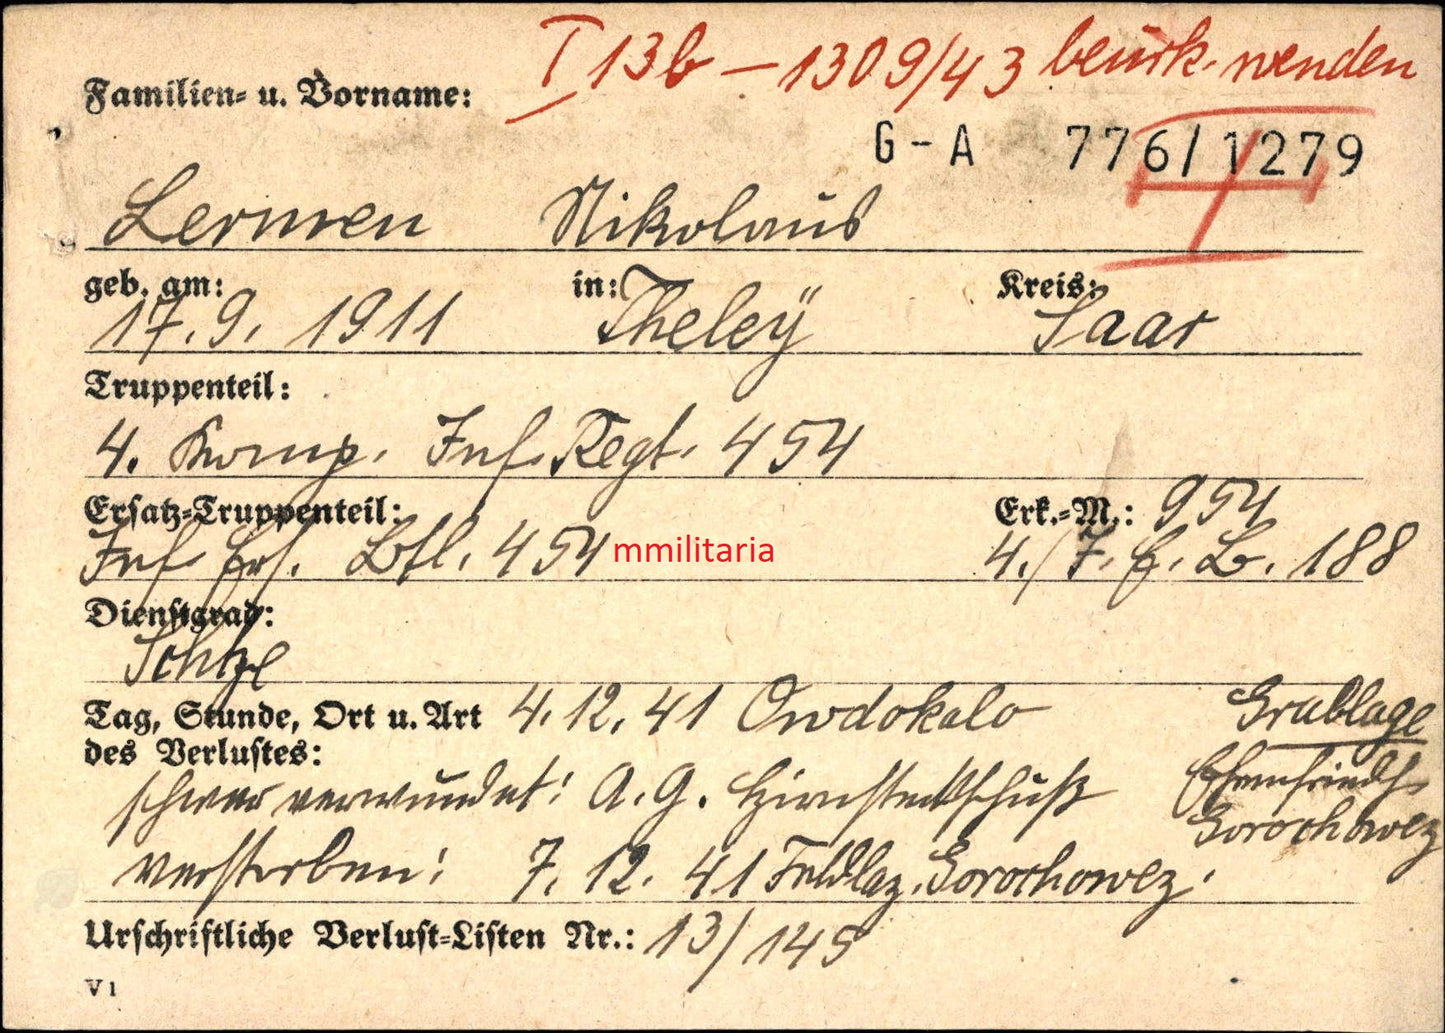 I 13b – 1309/43 beurk. wenden
Familien- u. Vorname:
G-A 776/1279
Lermen Nikolaus
geb. am: in: Kreis:
17.9.1911 Theleÿ Saar
Truppenteil:
4. Komp. Inf. Regt. 454
Ersatz-Truppenteil: Erk.-M.: 954
Inf. Ers. Btl. 454 mmilitaria 4./I.E.B. 188
Dienstgrad:
Schtze
Tag, Stunde, Ort u. Art 4.12.41 Owdokalo Grablage
des Verlustes:
schwer verwundet: A.G. Hirnsteckschuß Ehrenfriedh.
Gorochowez
verstorben: 7.12.41 Feldlaz. Gorochowez.
Urschriftliche Verlust-Listen Nr.: 13/145
V 1